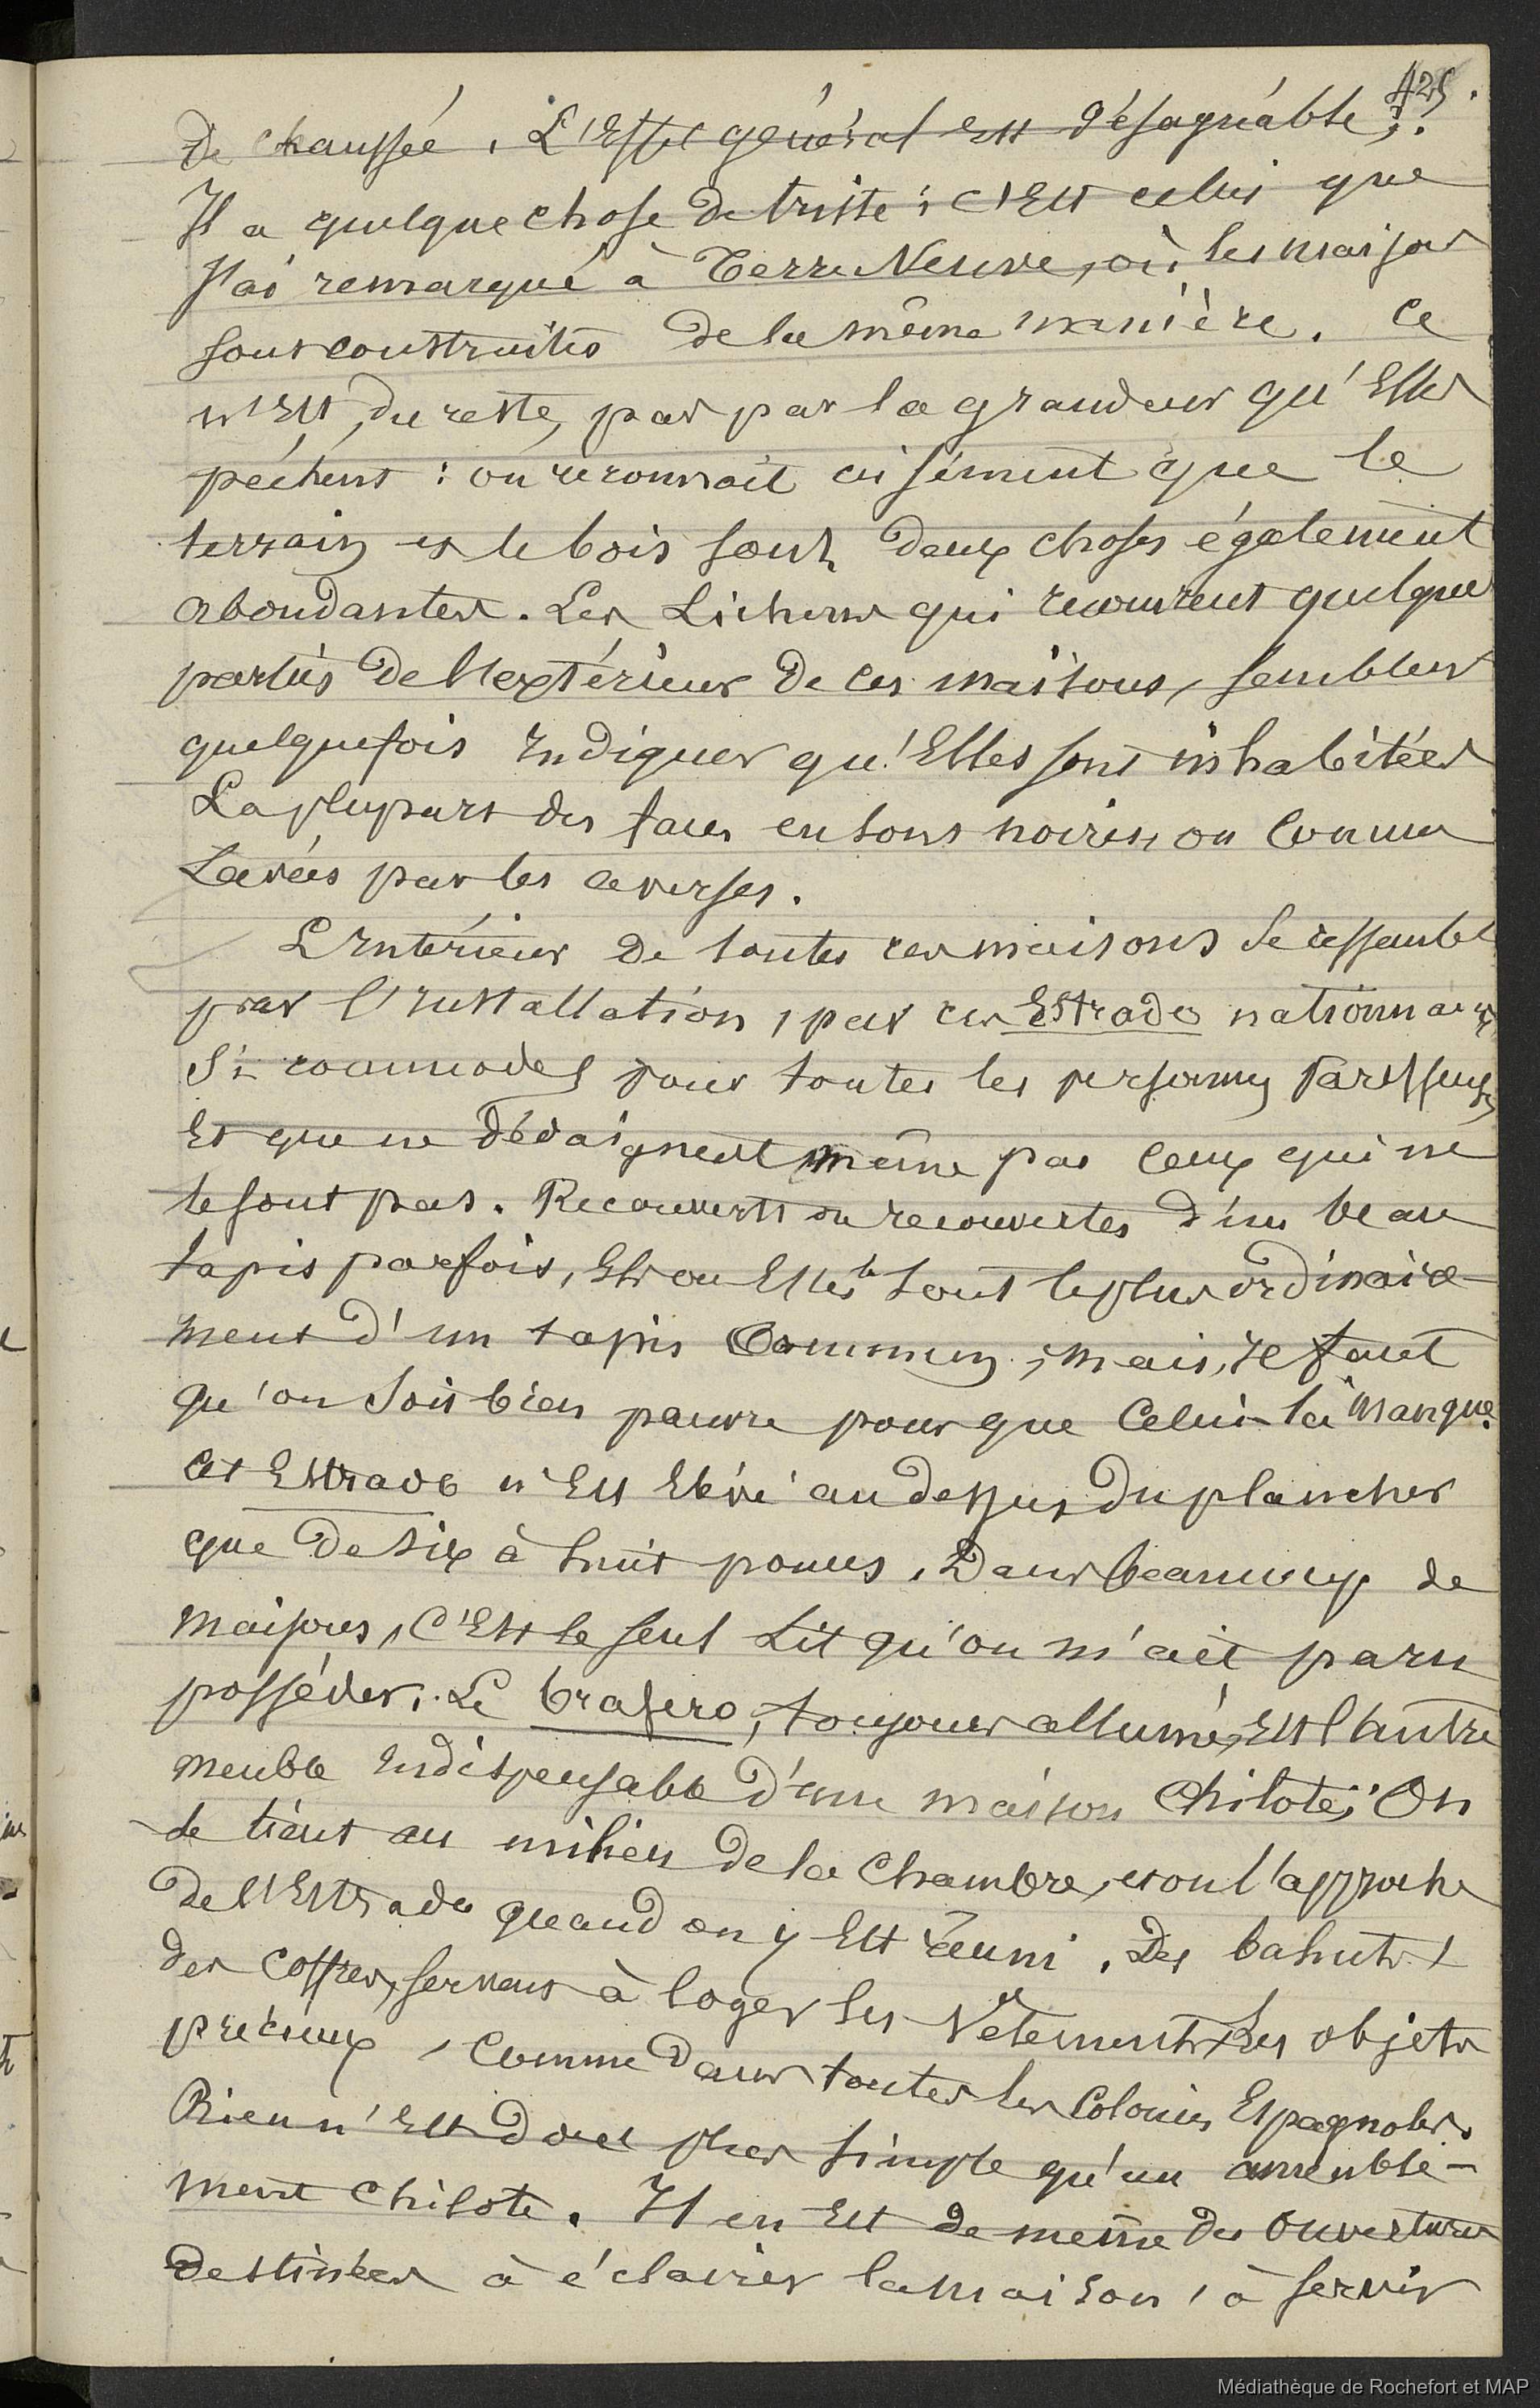 425.
De chaussée. L'Effet général est désagréable;
Il a quelque chose de triste; c'Est celui que
J'ai remarqué à Terre Neuve, où les maisons
sont construites de la même manière. Ce
n'Est, du reste, pas par la grandeur qu'Elles
péchent : on reconnait aisément que le
terrain et le bois sont deux choses également
abondantes. Les Lichens qui recouvrent quelques
parties de l'extérieur de ces maisons, semblent
quelquefois Indiquer qu'Elles sont inhabitées
La plupart des faces en sont noires, ou comme
Lavées par les averses.
L'Intérieur de toutes ces maisons se ressemble
par l'Installation, par ces Estrade nationnaux,
Si commodes pour toutes les personnes Paresseuses,
Et que ne dédaignent même pas ceux qui ne
le sont pas. Recouverts ou recouvertes d'un beau
tapis parfois, Els ou Elles le sont le plus ordinaire-
ment d'un tapis Commun; mais, Il faut
qu'on soit bien pauvre pour que Celui-là manque.
Cet Estrade n'Est Elevé au dessus du plancher
que de six à huit pouces. Dans beaucoup de
maisons, C'Est le seul Lit qu'on m'ait paru
posséder. Le brasero, toujours allumé, Est l'autre
meuble Indispensable d'une maison Chilote; On
le tient au milieu de la Chambre, et on l'approche
de l'Estrade quand on y Est réuni. Des bahuts &
des coffres, servent à loger les Vêtements & les objets
précieux, comme dans toutes les Colonies Espagnoles.
Rien n'Est donc plus simple qu'un ameuble-
ment Chilote. Il en Est de même des Ouvertures
destinées à éclairer la maison, à servir
Médiathèque de Rochefort et MAP